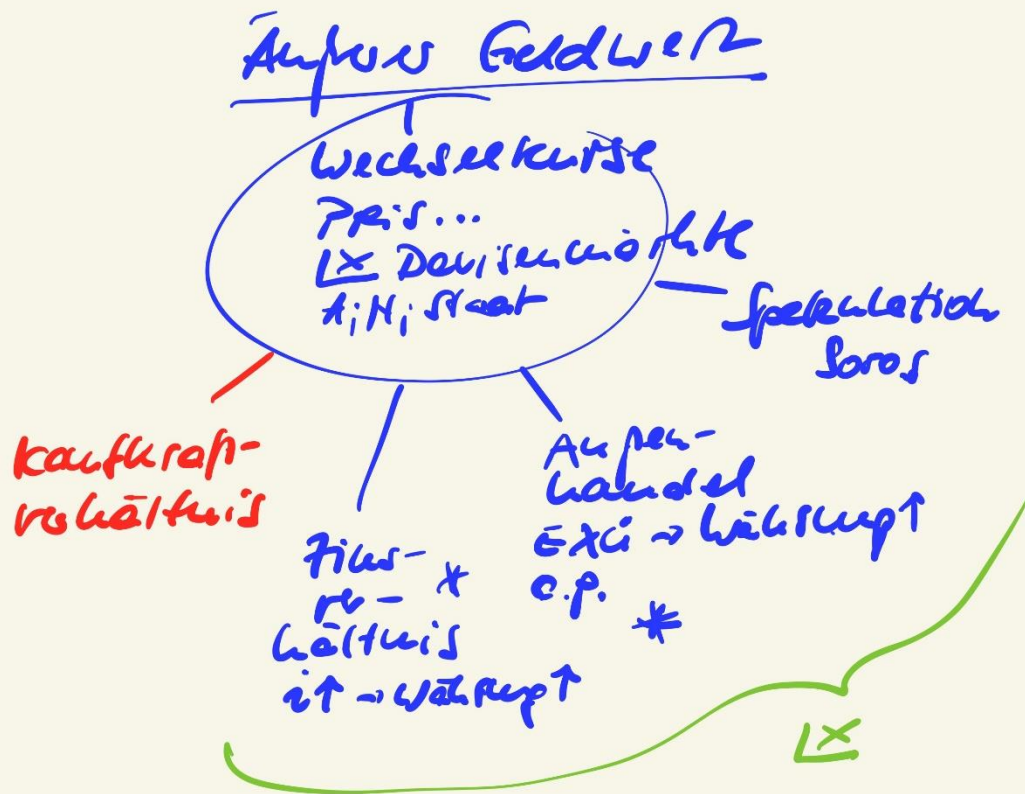 Äußerer Geldwert
Wechselkurse
Preis...
Devisenmärkte
A; N; Staat
Spekulation
Soros
Kaufkraft-
verhältnis
Zins-
ver-
hältnis
i↑ → Währung↑
Außen-
handel
EXÜ → Währung↑
c.p.